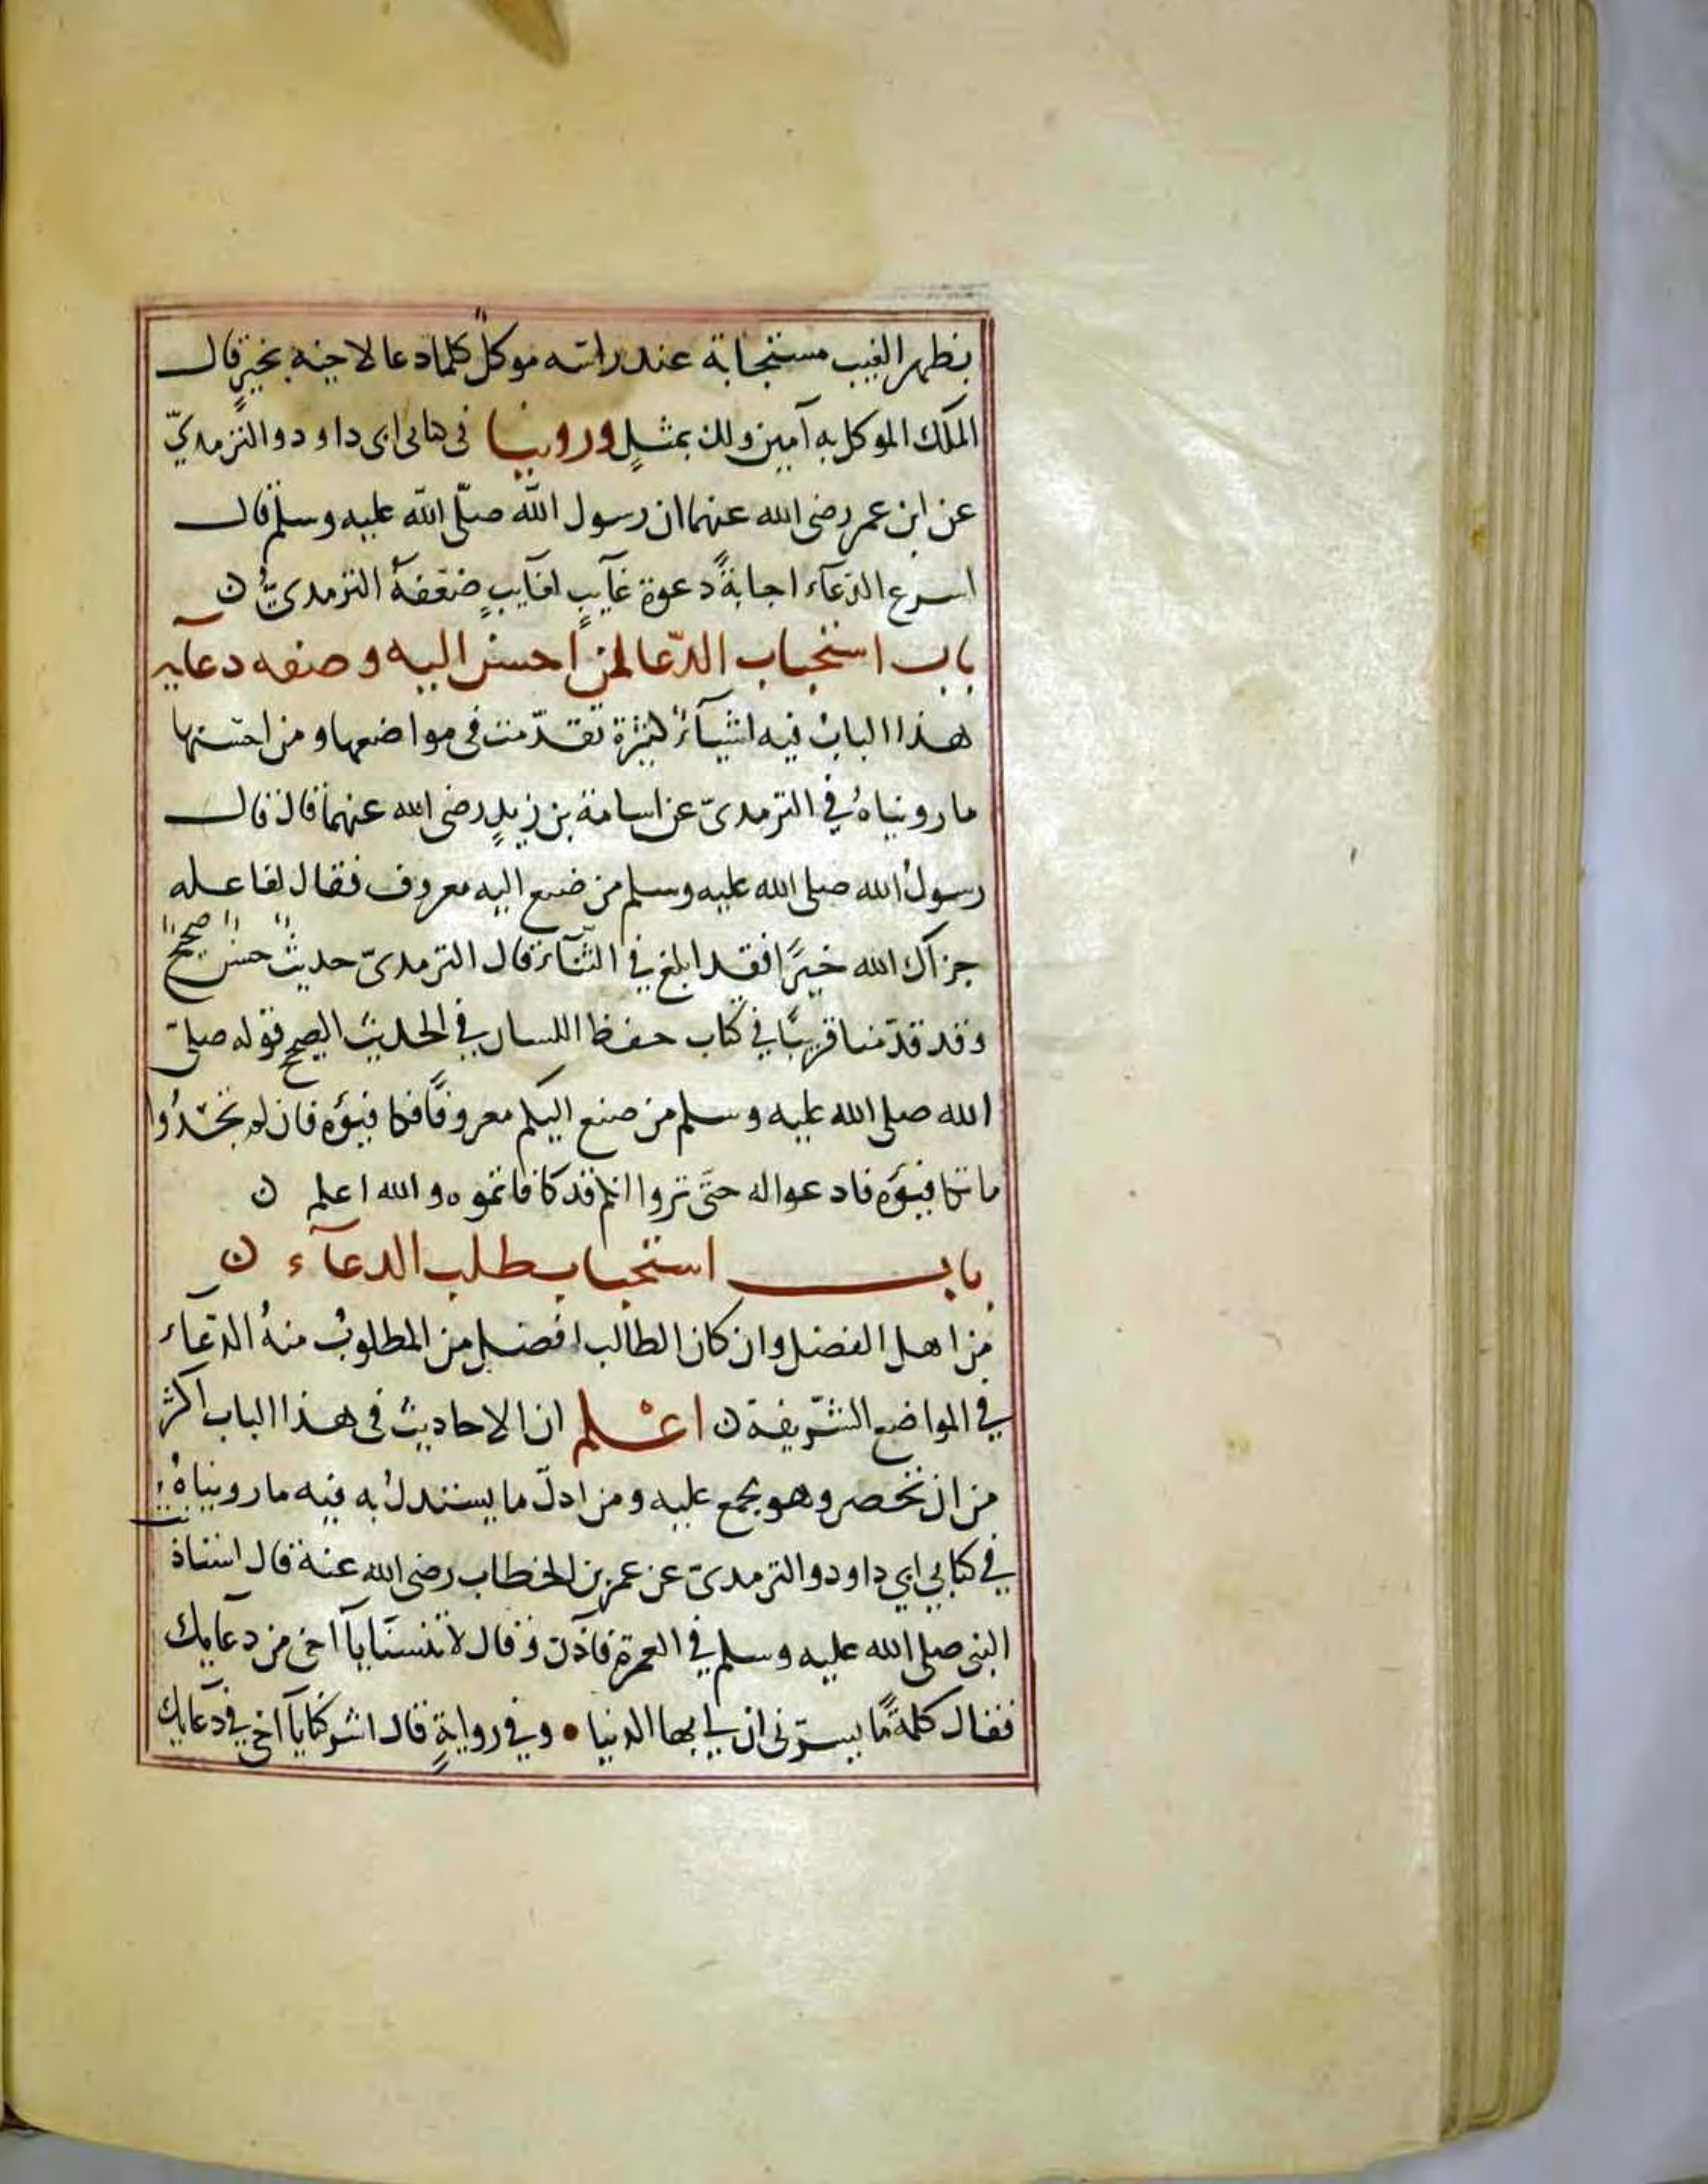 بظهر الغيب مستجابة عند راسه موكل كلما دعا لاخيه بخير قال
الملك الموكل به آمين ولك بمثل وروينا فى كتابى ابى داود والترمذيّ
عن ابن عمر رضى الله عنهما ان رسول الله صلّى الله عليه وسلم قال
اسرع الدعآء اجابةً دعوة غآيب لغآيبٍ ضعّفهُ الترمدىّ ن
باب استحباب الدّعا لمن احسن اليه وصفه دعآيه
هذا الباب فيه اشيآء كثيرة تقدّمت فى مواضعها ومن احسنها
ما رويناهُ في الترمدىّ عن اسامة بن زيدٍ رضى الله عنهما قال قال
رسولُ الله صلى الله عليه وسلم من صنع اليه معروف فقال لفاعله
جزآك الله خيرًا فقد ابلغ في الثنآء قال الترمدىّ حديثٌ حسن صحيح
وقد قدّمنا قريبًا في كتاب حفظ اللسان في الحديث الصحيح قوله صلى
الله صلى الله عليه وسلم من صنع اليكم معروفًا فكافيؤه فان لم تجدُوا
ما تكافيؤه فادعوا له حتّى تروا انكم قد كافاتموه والله اعلم ن
باب استحباب طلب الدعآء ن
من اهل الفضل وان كان الطالب افضل من المطلوب منهُ الدعآء
في المواضع الشّريفة ن اعْلم ان الاحاديث فى هذا الباب اكثر
من ان تحصر وهو مجمع عليه ومن ادلّ ما يستدلُ به فيه ما رويناهُ
في كتابي ابي داود والترمدىّ عن عمر بن الخطاب رضى الله عنه قال استاذنت
النبى صلى الله عليه وسلم في العمرة فاذن وقال لا تنسنا يآ اخى من دعآيك
فقال كلمةً ما يسرّنى ان لي بها الدنيا • وفي روايةٍ قال اشركنا يآ اخي في دعآيك